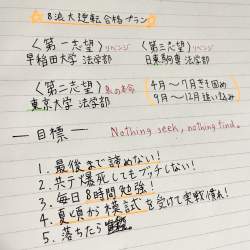 ☆8浪大逆転合格プラン☆
〈第一志望〉リベンジ
早稲田大学 法学部
〈第三志望〉リベンジ
日東駒専 法学部
〈第二志望〉私の本命
東京大学 法学部
4月〜7月きそ固め
9月〜12月追い込み
— 目標 —
Nothing seek, nothing find.
1. 最後まで諦めない!
2. 共テ爆死してもブッチしない!
3. 毎日8時間勉強!
4. 夏頃から模試を受けて実戦慣れ!
5. 落ちたら